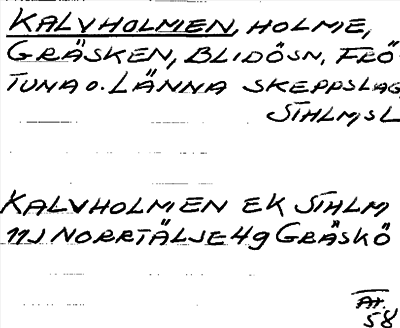 KALVHOLMEN, HOLME,
GRÄSKEN, BLIDÖSN, FRÖ-
TUNA O. LÄNNA SKEPPSLAG,
STHLMS L
KALVHOLMEN EK STHLM
11J NORRTÄLJE 4g GRÄSKÖ
58